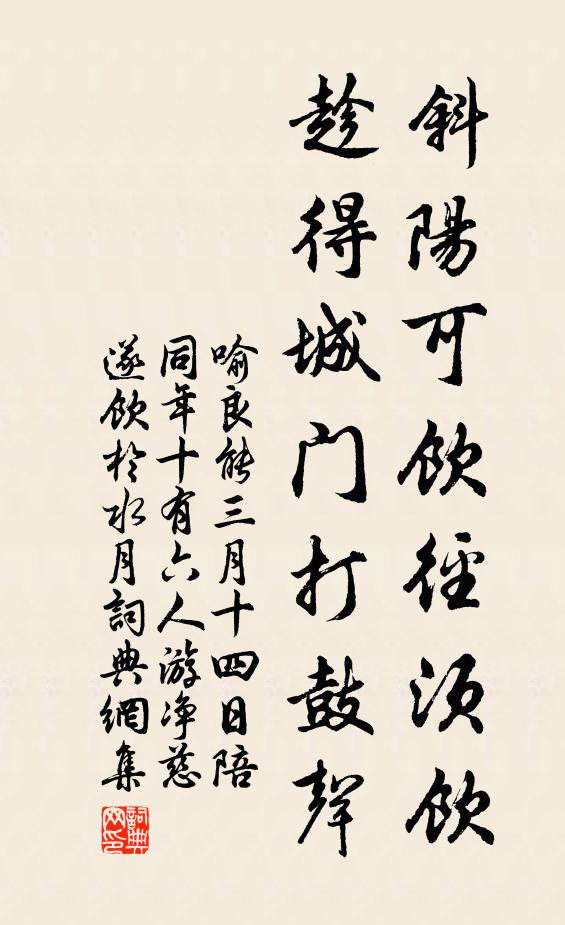 斜陽可飲徑須飲
趁得城门打鼓聲
喻良能三月十四日陪
同年十有六人游净慈
遂飲於水月詞典網集
詞典
网印